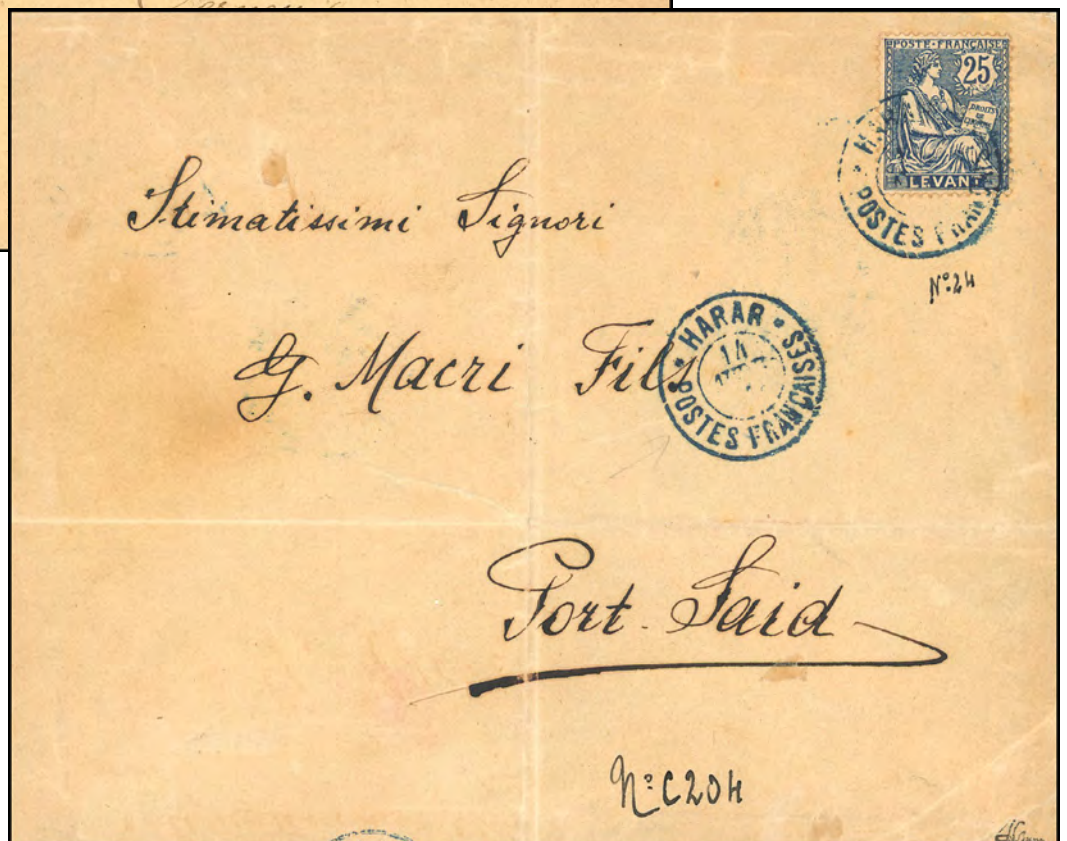 POSTE FRANÇAISE
25
DROITS DE L'HOMME
LEVANT
POSTES FRAN
Nº24
Stematissimi Signori
G. Macri Fils
HARAR
14
POSTES FRANÇAISES
Port-Said
Nº C204